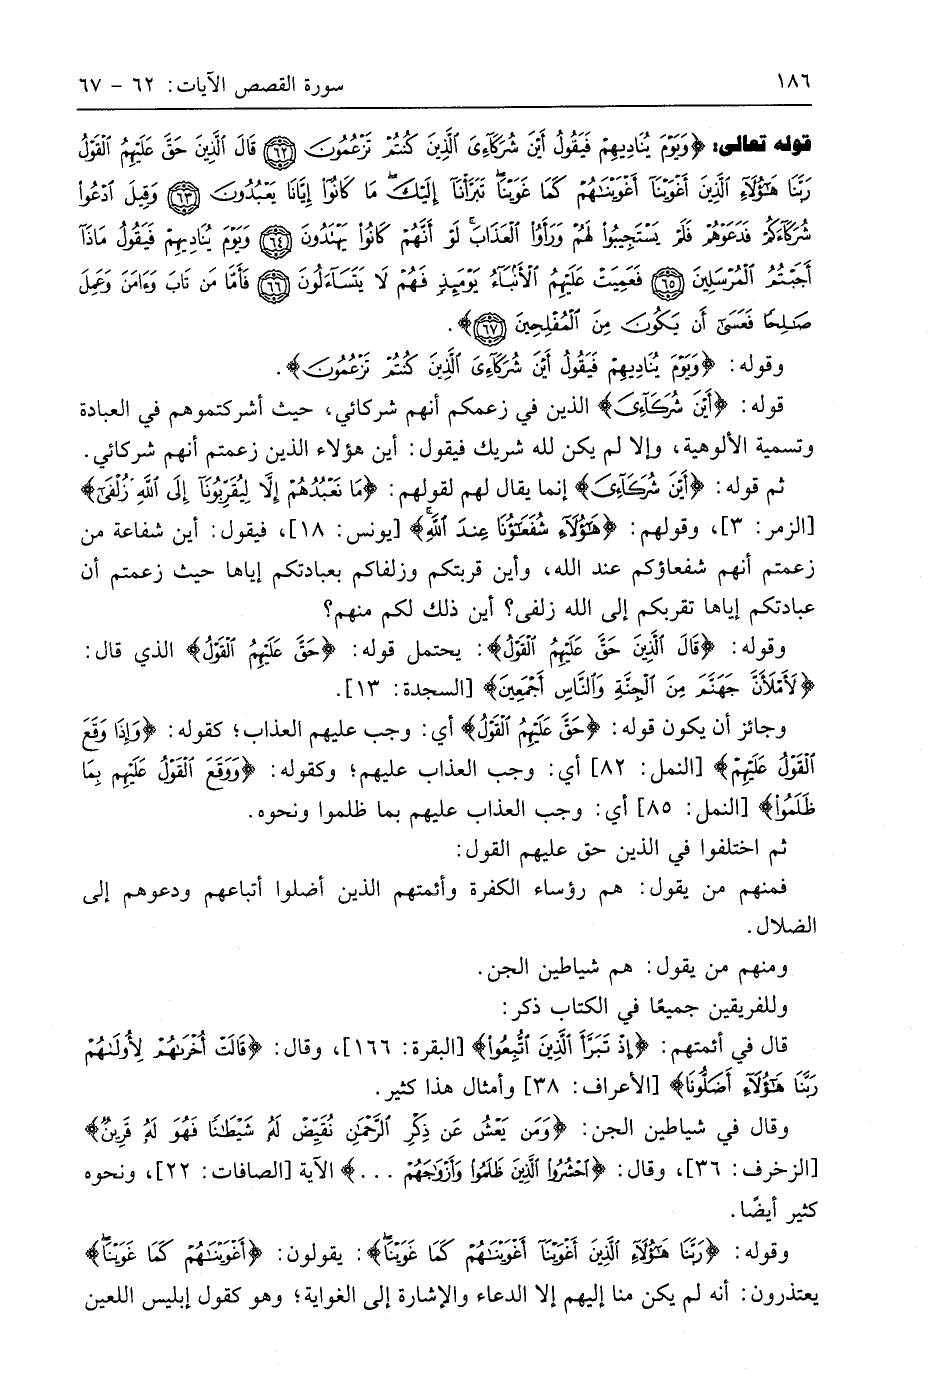 ١٨٦ سورة القصص الآيات: ٦٢ - ٦٧
قوله تعالى: ﴿وَيَوْمَ يُنَادِيهِمْ فَيَقُولُ أَيْنَ شُرَكَآءِىَ ٱلَّذِينَ كُنتُمْ تَزْعُمُونَ ۝٦٢ قَالَ ٱلَّذِينَ حَقَّ عَلَيْهِمُ ٱلْقَوْلُ
رَبَّنَا هَٰٓؤُلَآءِ ٱلَّذِينَ أَغْوَيْنَآ أَغْوَيْنَٰهُمْ كَمَا غَوَيْنَا ۖ تَبَرَّأْنَآ إِلَيْكَ ۖ مَا كَانُوٓا۟ إِيَّانَا يَعْبُدُونَ ۝٦٣ وَقِيلَ ٱدْعُوا۟
شُرَكَآءَكُمْ فَدَعَوْهُمْ فَلَمْ يَسْتَجِيبُوا۟ لَهُمْ وَرَأَوُا۟ ٱلْعَذَابَ ۚ لَوْ أَنَّهُمْ كَانُوا۟ يَهْتَدُونَ ۝٦٤ وَيَوْمَ يُنَادِيهِمْ فَيَقُولُ مَاذَآ
أَجَبْتُمُ ٱلْمُرْسَلِينَ ۝٦٥ فَعَمِيَتْ عَلَيْهِمُ ٱلْأَنۢبَآءُ يَوْمَئِذٍ فَهُمْ لَا يَتَسَآءَلُونَ ۝٦٦ فَأَمَّا مَن تَابَ وَءَامَنَ وَعَمِلَ
صَٰلِحًا فَعَسَىٰٓ أَن يَكُونَ مِنَ ٱلْمُفْلِحِينَ ۝٦٧﴾.
وقوله: ﴿وَيَوْمَ يُنَادِيهِمْ فَيَقُولُ أَيْنَ شُرَكَآءِىَ ٱلَّذِينَ كُنتُمْ تَزْعُمُونَ﴾.
قوله: ﴿أَيْنَ شُرَكَآءِىَ﴾ الذين في زعمكم أنهم شركائي، حيث أشركتموهم في العبادة
وتسمية الألوهية، وإلا لم يكن لله شريك فيقول: أين هؤلاء الذين زعمتم أنهم شركائي.
ثم قوله: ﴿أَيْنَ شُرَكَآءِىَ﴾ إنما يقال لهم لقولهم: ﴿مَا نَعْبُدُهُمْ إِلَّا لِيُقَرِّبُونَآ إِلَى ٱللَّهِ زُلْفَىٰٓ﴾
[الزمر: ٣]، وقولهم: ﴿هَٰٓؤُلَآءِ شُفَعَٰٓؤُنَا عِندَ ٱللَّهِ ۚ﴾ [يونس: ١٨]، فيقول: أين شفاعة من
زعمتم أنهم شفعاؤكم عند الله، وأين قربتكم وزلفاكم بعبادتكم إياها حيث زعمتم أن
عبادتكم إياها تقربكم إلى الله زلفى؟ أين ذلك لكم منهم؟
وقوله: ﴿قَالَ ٱلَّذِينَ حَقَّ عَلَيْهِمُ ٱلْقَوْلُ﴾: يحتمل قوله: ﴿حَقَّ عَلَيْهِمُ ٱلْقَوْلُ﴾ الذي قال:
﴿لَأَمْلَأَنَّ جَهَنَّمَ مِنَ ٱلْجِنَّةِ وَٱلنَّاسِ أَجْمَعِينَ﴾ [السجدة: ١٣].
وجائز أن يكون قوله: ﴿حَقَّ عَلَيْهِمُ ٱلْقَوْلُ﴾ أي: وجب عليهم العذاب؛ كقوله: ﴿وَإِذَا وَقَعَ
ٱلْقَوْلُ عَلَيْهِمْ﴾ [النمل: ٨٢] أي: وجب العذاب عليهم؛ وكقوله: ﴿وَوَقَعَ ٱلْقَوْلُ عَلَيْهِم بِمَا
ظَلَمُوا۟﴾ [النمل: ٨٥] أي: وجب العذاب عليهم بما ظلموا ونحوه.
ثم اختلفوا في الذين حق عليهم القول:
فمنهم من يقول: هم رؤساء الكفرة وأئمتهم الذين أضلوا أتباعهم ودعوهم إلى
الضلال.
ومنهم من يقول: هم شياطين الجن.
وللفريقين جميعًا في الكتاب ذكر:
قال في أئمتهم: ﴿إِذْ تَبَرَّأَ ٱلَّذِينَ ٱتُّبِعُوا۟﴾ [البقرة: ١٦٦]، وقال: ﴿قَالَتْ أُخْرَىٰهُمْ لِأُولَىٰهُمْ
رَبَّنَا هَٰٓؤُلَآءِ أَضَلُّونَا﴾ [الأعراف: ٣٨] وأمثال هذا كثير.
وقال في شياطين الجن: ﴿وَمَن يَعْشُ عَن ذِكْرِ ٱلرَّحْمَٰنِ نُقَيِّضْ لَهُۥ شَيْطَٰنًا فَهُوَ لَهُۥ قَرِينٌ﴾
[الزخرف: ٣٦]، وقال: ﴿ٱحْشُرُوا۟ ٱلَّذِينَ ظَلَمُوا۟ وَأَزْوَٰجَهُمْ ...﴾ الآية [الصافات: ٢٢]، ونحوه
كثير أيضًا.
وقوله: ﴿رَبَّنَا هَٰٓؤُلَآءِ ٱلَّذِينَ أَغْوَيْنَآ أَغْوَيْنَٰهُمْ كَمَا غَوَيْنَا ۖ﴾: يقولون: ﴿أَغْوَيْنَٰهُمْ كَمَا غَوَيْنَا ۖ﴾
يعتذرون: أنه لم يكن منا إليهم إلا الدعاء والإشارة إلى الغواية؛ وهو كقول إبليس اللعين